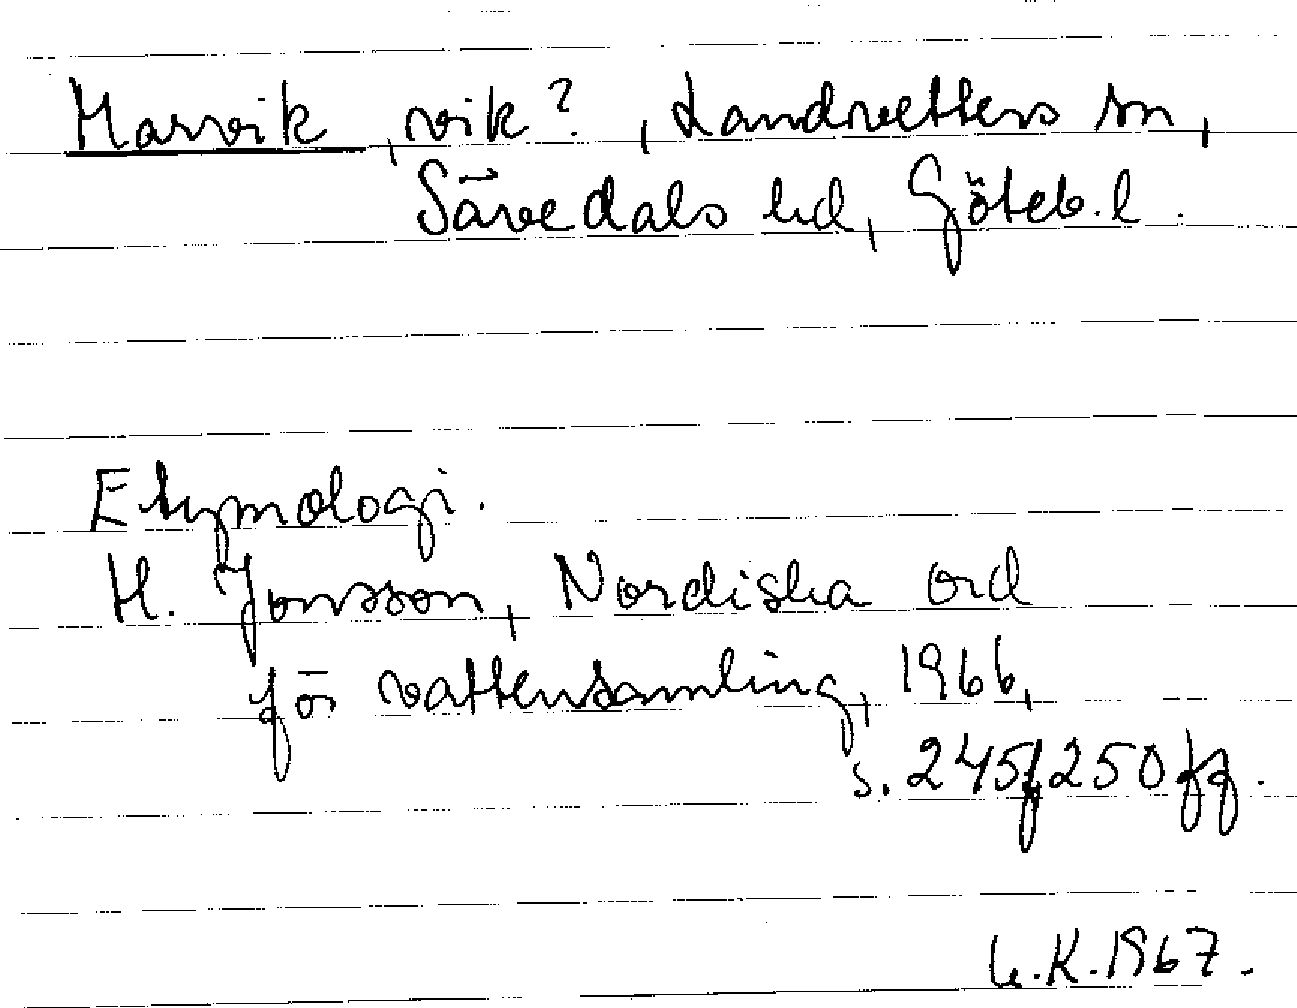 Harvik, vik?, Landvetters sn,
Sävedals hd, Göteb. l.
Etymologi.
H. Jonsson, Nordiska ord
för vattensamling, 1966,
s. 245f, 250 ff.
K. 1967.